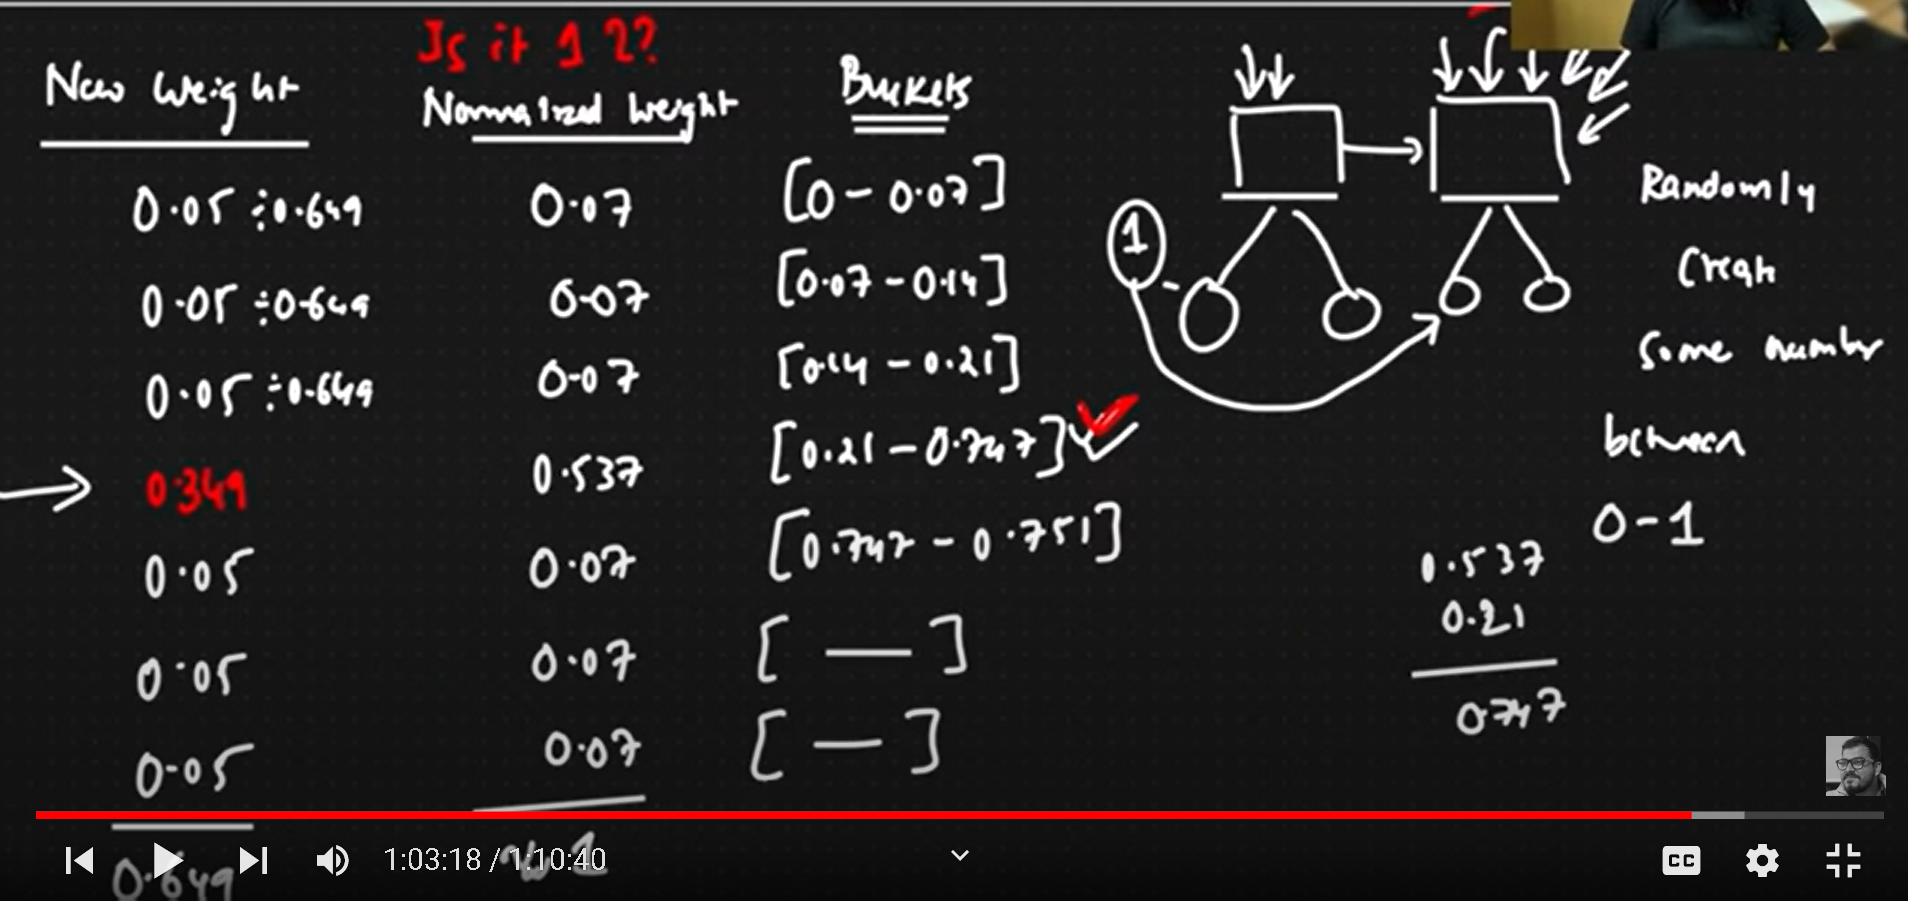 Is it 1 2?
New Weight
Normalized Weight
Buckets
0.05 ÷ 0.649
0.07
[0 - 0.07]
0.05 ÷ 0.649
0.07
[0.07 - 0.14]
0.05 ÷ 0.649
0.07
[0.14 - 0.21]
0.349
0.537
[0.21 - 0.747]
0.05
0.07
[0.747 - 0.751]
0.05
0.07
[ — ]
0.05
0.07
[ — ]
0.649
≈ 1
1
Randomly
Create
Some number
between
0-1
0.537
0.21
0.747
1:03:18 / 1:10:40
CC